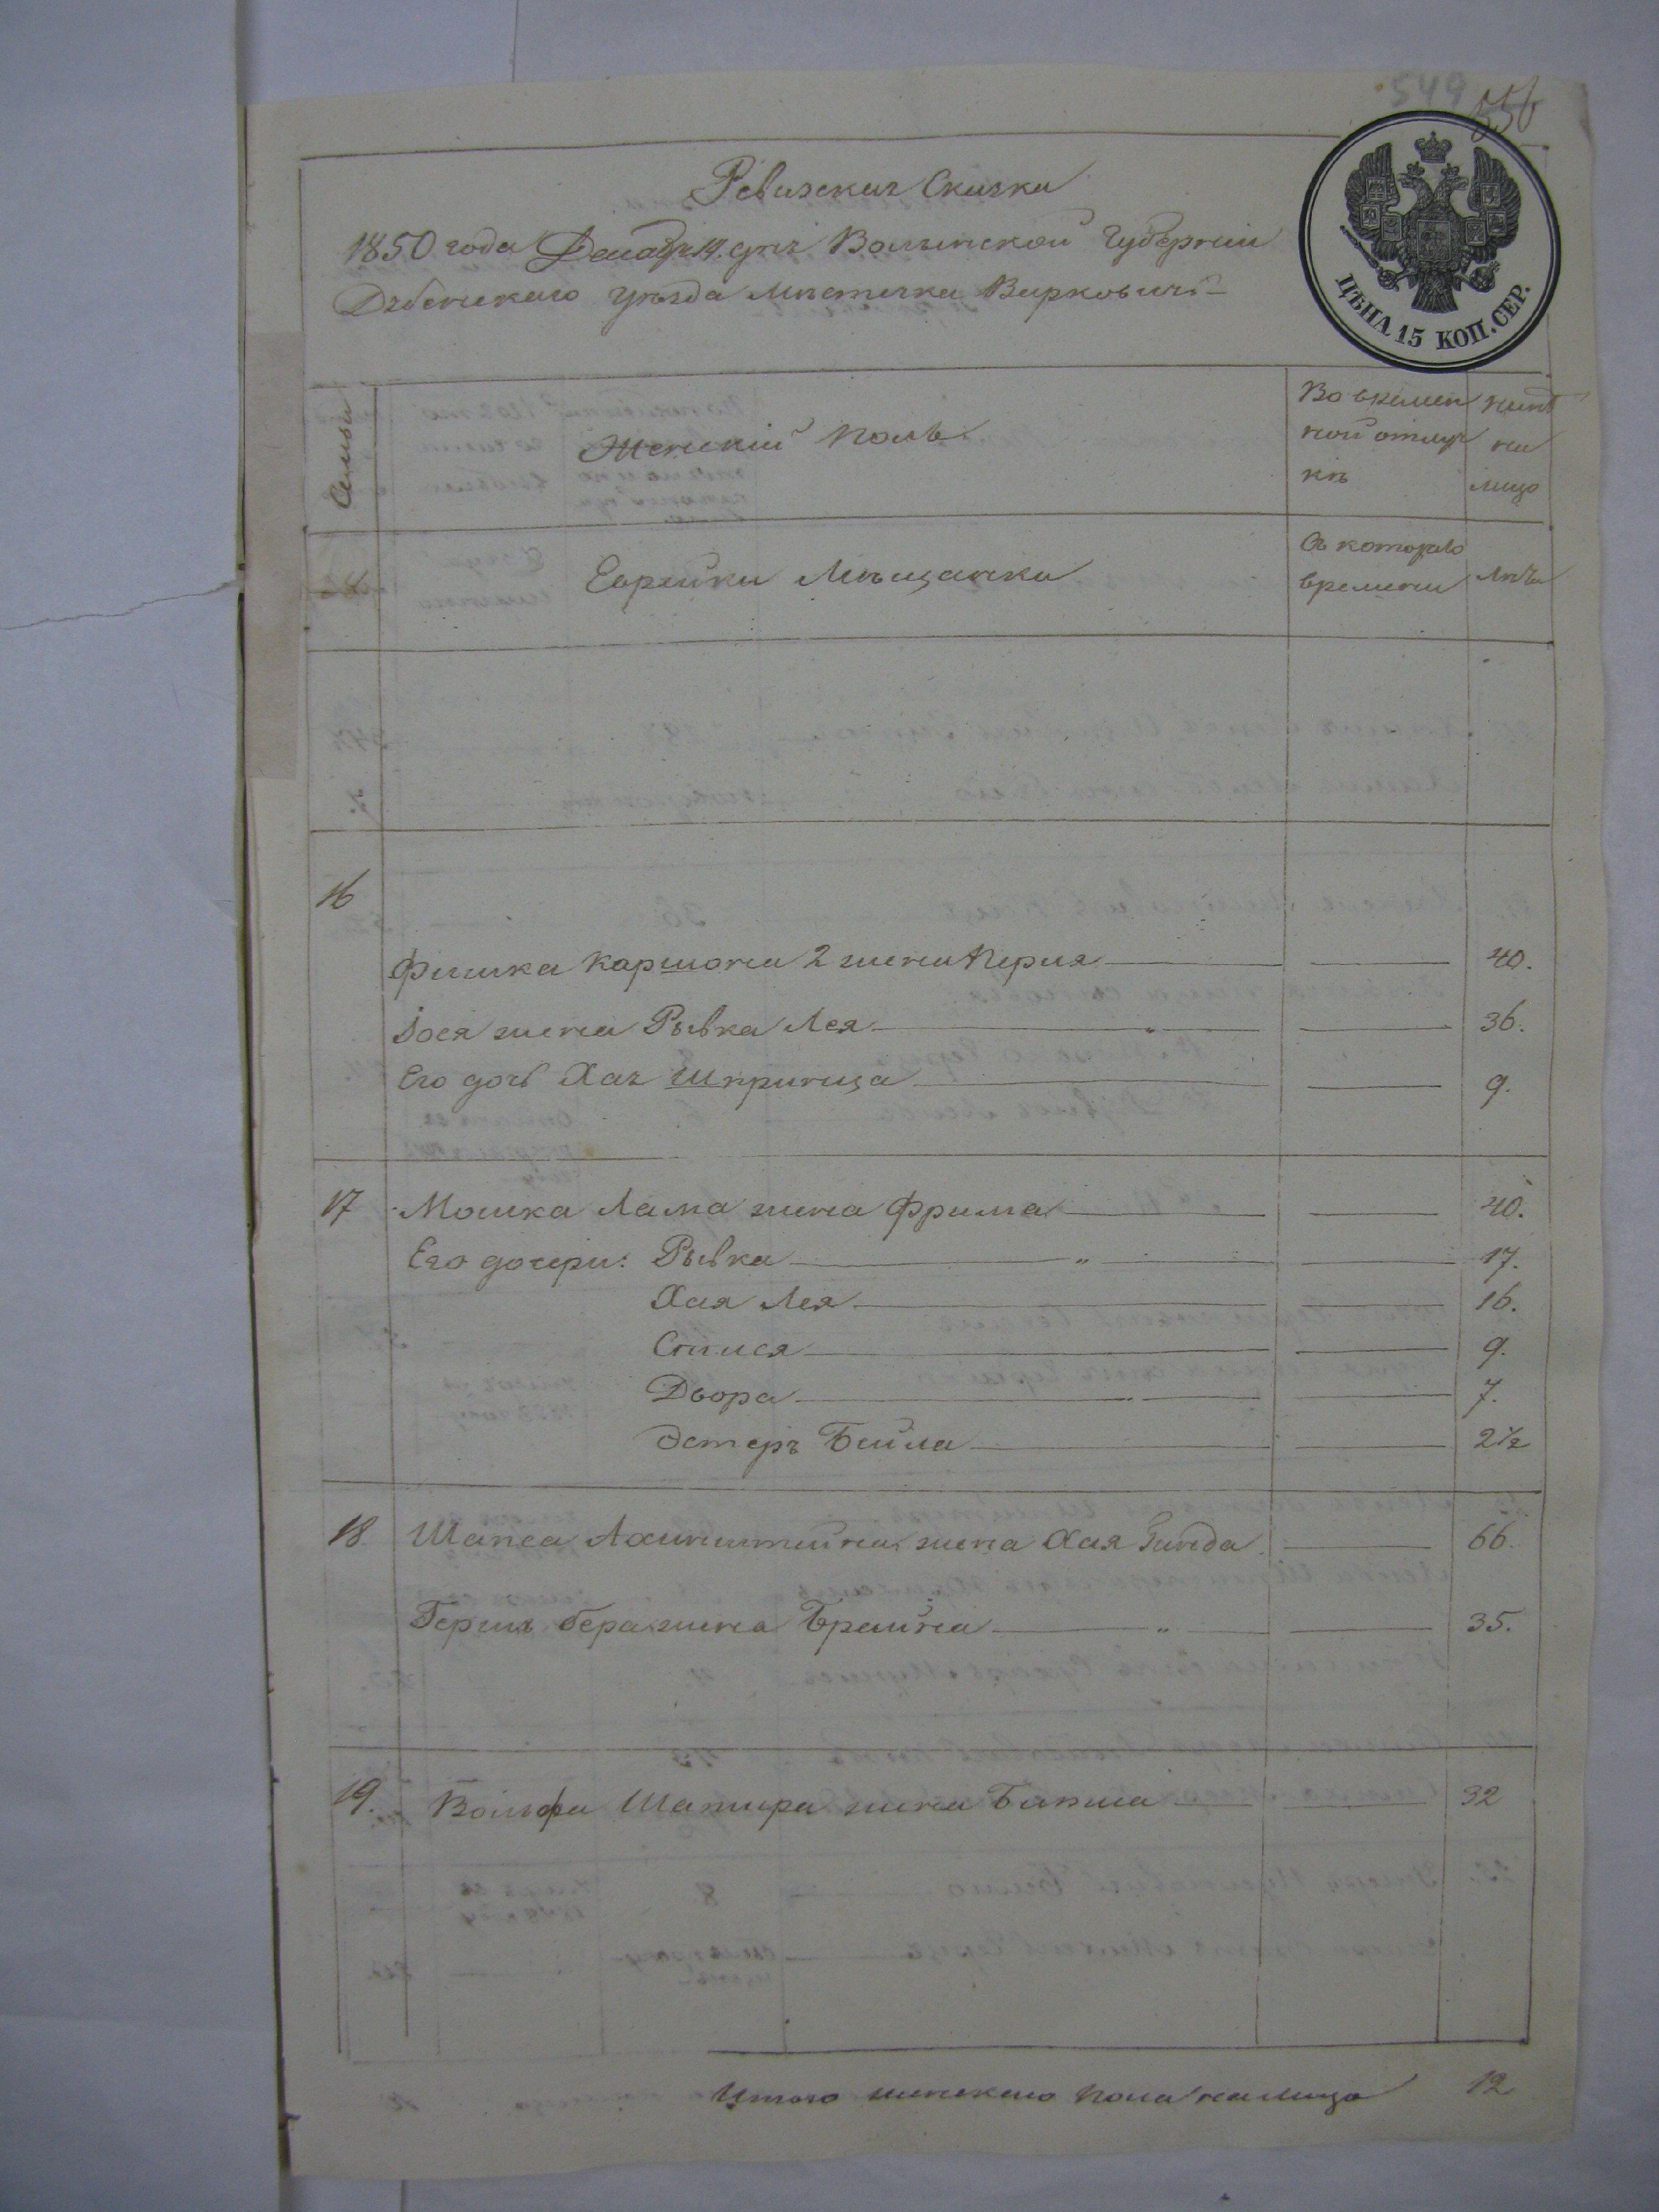 549
556
Ревизская Сказка
1850 года Декабря 14 дня Волынской Губернии
Дубенскаго Уезда Местечка Варковичъ
ЦѢНА 15 КОП. СЕР.
Семьи
Женскій Полъ
Во времен
ной отлуч
кѣ
ныне
на
лицо
Еврейки Мѣщанки
Съ котораго
времени
Лета
16
Фишка Каршона 2 жена Перля 40.
Іося жена Рывка Лея 36.
Его дочь Хая Шпринца 9.
17 Мошка Лама жена Фрима 40.
Его дочери: Рывка 17.
Хая Лея 16.
Спися 9.
Двора 7.
Эстеръ Бейла 2½
18 Шапса Ахинштейна жена Хая Гинда 66.
Гершъ бера жена Брайна 35.
19. Вольфа Шапира жена Бапша 32
Итого женскаго пола налицо 12